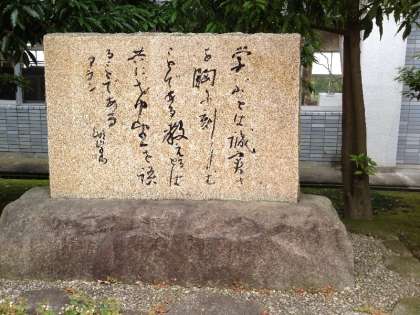 学ぶとは誠実さ
を胸に刻みこむ
ことである教えるとは
共に希望を語
ることである
アラゴン